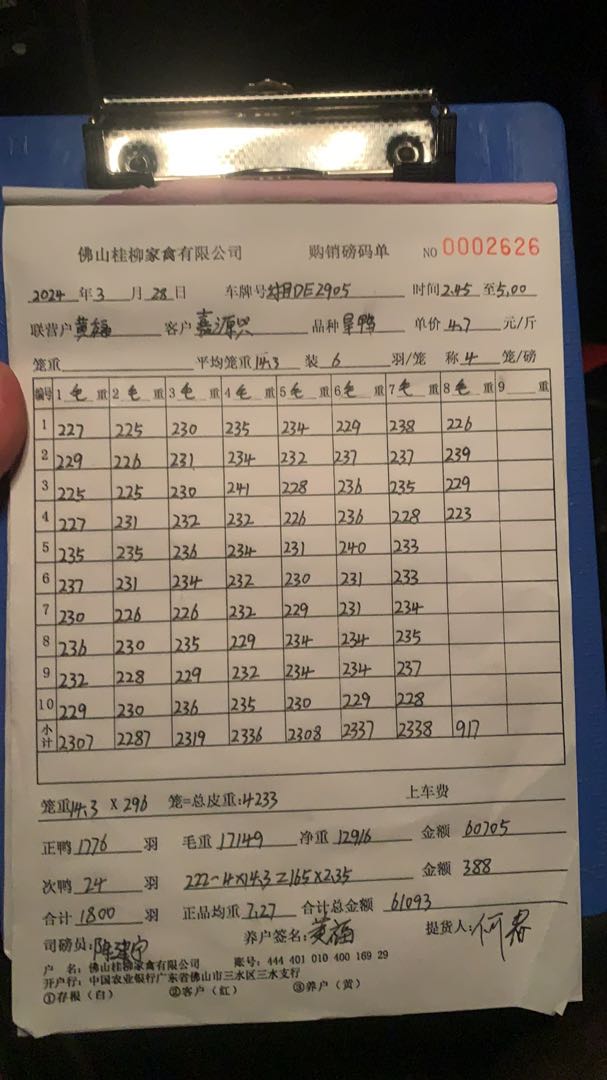 佛山桂柳家禽有限公司 购销磅码单 NO 0002626
2024 年 3 月 28 日 车牌号 DE2905 时间 2.45 至 5.00
联营户 黄福 客户 嘉源兴 品种 单价 4.7 元/斤
笼重 平均笼重 14.3 装 6 羽/笼 称 4 笼/磅
编号 1 毛 重 2 毛 重 3 毛 重 4 毛 重 5 毛 重 6 毛 重 7 毛 重 8 毛 重 9 重
1 227 225 230 235 234 229 238 226
2 229 226 231 234 232 237 237 239
3 225 225 230 241 228 236 235 229
4 227 231 232 232 226 236 228 223
5 235 235 236 234 231 240 233
6 237 231 234 232 230 231 233
7 230 226 226 232 229 231 234
8 236 230 235 229 234 234 235
9 232 228 229 232 234 234 237
10 229 230 236 235 230 229 228
小计 2307 2287 2319 2336 2308 2337 2338 917
笼重 14.3 X 296 笼=总皮重:4233 上车费
正鸭 1776 羽 毛重 17149 净重 12916 金额 60705
次鸭 24 羽 222-4×14.3=165×2.35 金额 388
合计 1800 羽 正品均重 7.27 合计总金额 61093
司磅员: 养户签名: 黄福 提货人: 何春
户 名: 佛山桂柳家禽有限公司 账号: 444 401 010 400 169 29
开户行: 中国农业银行广东省佛山市三水区三水支行
①存根(白) ②客户(红) ③养户(黄)